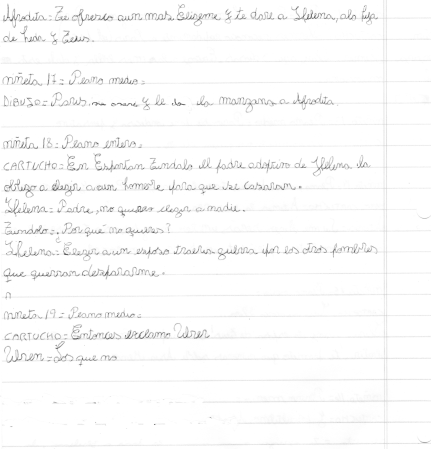 Afrodita = Te ofresco aun mas Eligeme y te dare a Helena, ala hija
de Leda y Zeus.
viñeta 17 = Plano medio =
DIBUJO = Paris y le da la manzana a Afrodita.
viñeta 18 = Plano entero =
CARTUCHO = En Espartan Tindalo el padre adoptivo de Helena la
obligo a elegir a un hombre para que se casaran.
Helena = Padre, no quiero elegir a nadie.
Tindolo = ¿Por qué no quieres?
Helena = Elegir a un esposo traeria guerra por los otros hombres
que querran
viñeta 19 = Plano medio =
CARTUCHO = Entonces exclamo
Los que no